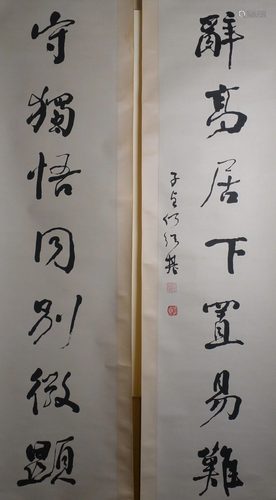 辭高居下置易難
守獨悟同別微顯
子貞何紹基